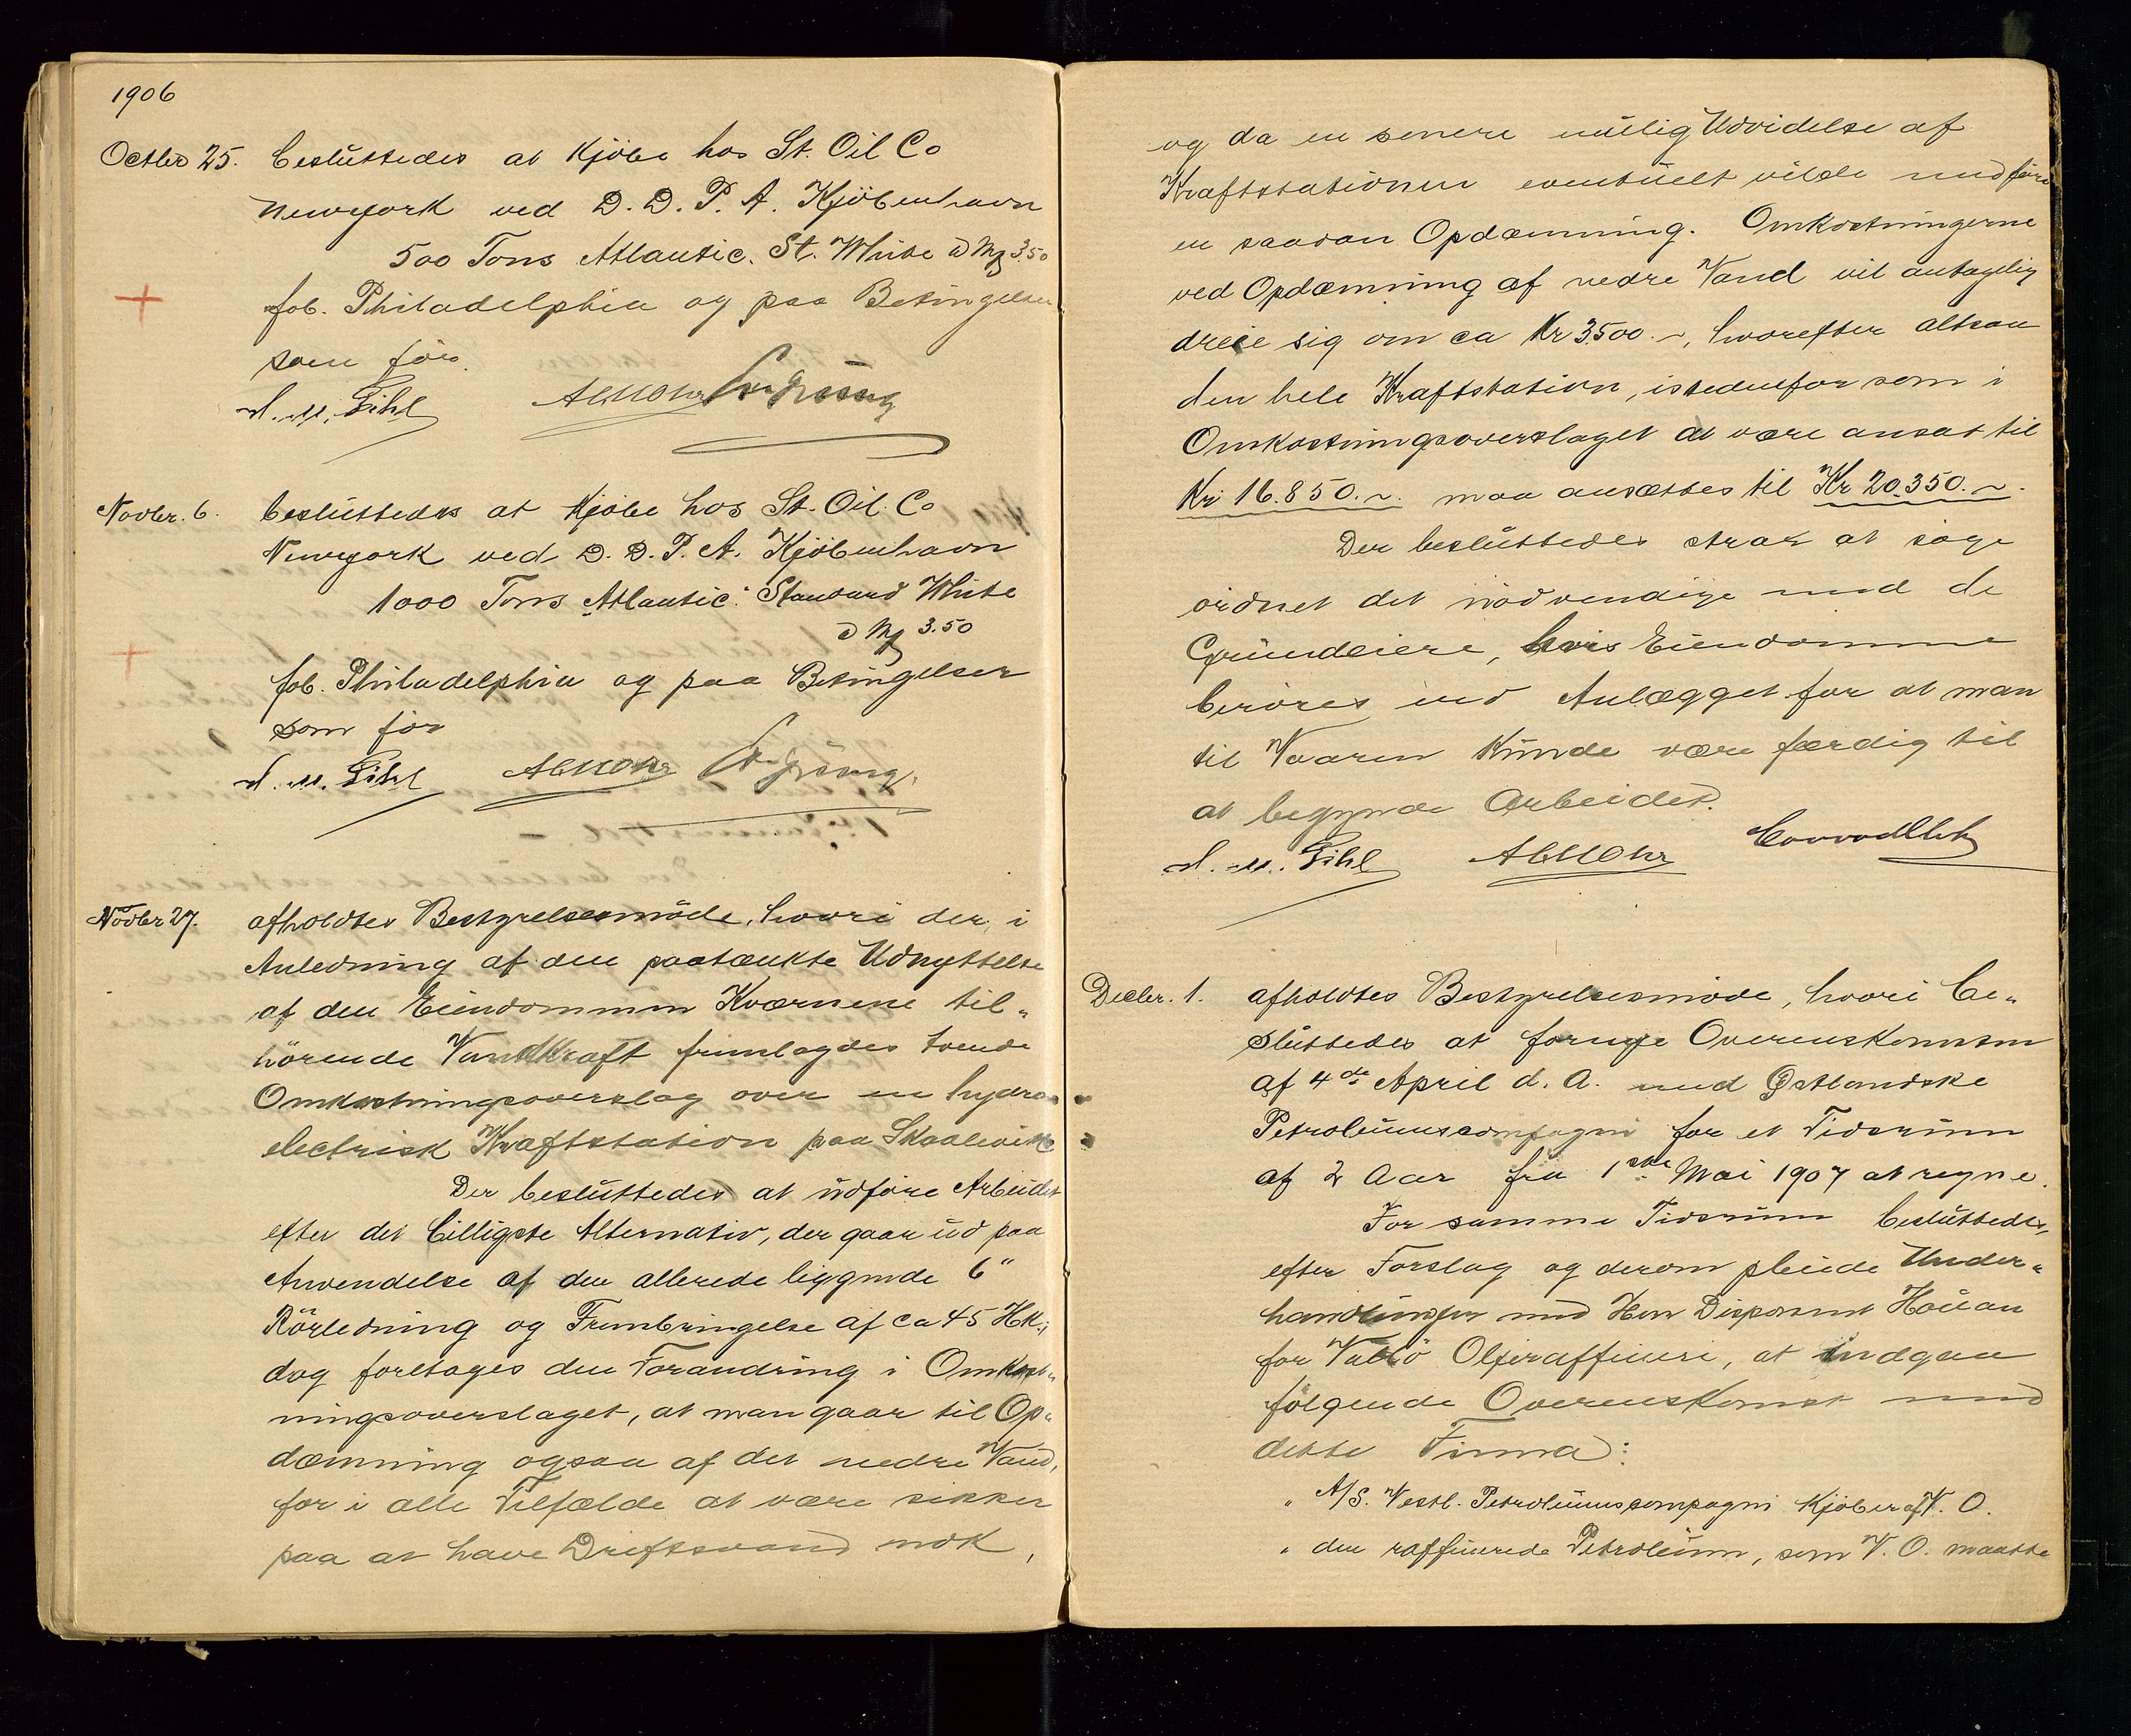 1906
Octber 25. besluttedes at Kjöbe hos St. Oil Co
Newyork ved D. D. P. A. Kjöbenhavn
500 Tons Atlantic. St. White à M/ 3.50
fob. Philadelphia og paa Betingelser
som för.
A C Mohr
Novbr. 6. besluttedes at Kjöbe hos St. Oil. Co
Newyork ved D. D. P. A. Kjöbenhavn
1000 Tons Atlantic. Standard White
à M/ 3.50
fob. Philadelphia og paa Betingelser
som för
A C Mohr
Novbr 27. afholdtes Bestyrelsesmöde, hvori der, i
Anledning af den paatænkte Udnyttelse
af den Eiendommen Kværnene til„
hörende Vandkraft fremlagdes tvende
Omkostningsoverslag over en hydro„
electrisk Kraftstation paa Skaalevik
Der besluttedes at udföre Arbeidet
efter det billigste Alternativ, der gaar ud paa
Anvendelse af den allerede liggende 6"
Rörledning og Frembringelse af ca 45 Hk.;
dog foretages den Forandring i Omkost„
ningsoverslaget, at man gaar til Op„
dæmning ogsaa af det nedre Vand,
for i alle Tilfælde at være sikker
paa at have Driftsvand nok,
og da en senere mulig Udvidelse af
Kraftstationen eventuelt vilde medföre
en saadan Opdæmning. Omkostningerne
ved Opdæmning af nedre Vand vil antagelig
dreie sig om ca Kr 3500.~, hvorefter altsaa
den hele Kraftstation, istedenfor som i
Omkostningsoverslaget at være ansat til
Kr 16.850.~. maa ansættes til Kr 20.350.~.
Der besluttedes strax at söge
ordnet det nödvendige med de
Grundeiere, hvis Eiendomme
beröres ved Anlægget for at man
til Vaaren Kunde være færdig til
at begynde Arbeidet.
A C Mohr
Decbr. 1. afholdtes Bestyrelsesmöde, hvori be„
sluttedes at fornye Overenskomsten
af 4de April d. A. med Østlandske
Petroleumscompagni for et Tidsrum
af 2 Aar fra 1ste Mai 1907 at regne.
For samme Tidsrum besluttedes,
efter Forslag og derom pleiede Under„
handlinger med Herr Disponent Houan
for Vallö Oljeraffineri, at indgaa
fölgende Overenskomst med
dette Firma:
„ A/S. Vestl. Petroleumscompagni Kjöber af V. O.
„ den raffinerede Petroleum, som V. O. maatte